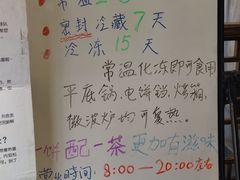 常温
密封冷藏7天
冷冻15天
常温化冻即可食用
平底锅、电饼铛、烤箱、
微波炉均可复热。
一饼配一茶 更加有滋味
营业时间：8:00—20:00左右